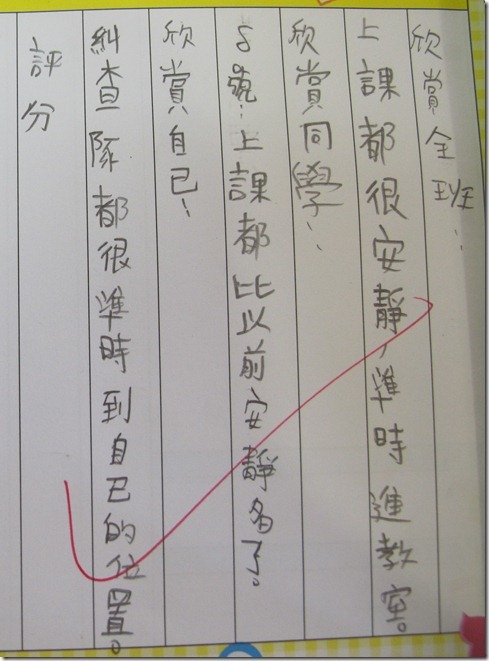 欣賞全班：
上課都很安靜，準時進教室。
欣賞同學：
8號：上課都比以前安靜多了。
欣賞自己：
糾查隊都很準時到自己的位置。
評分